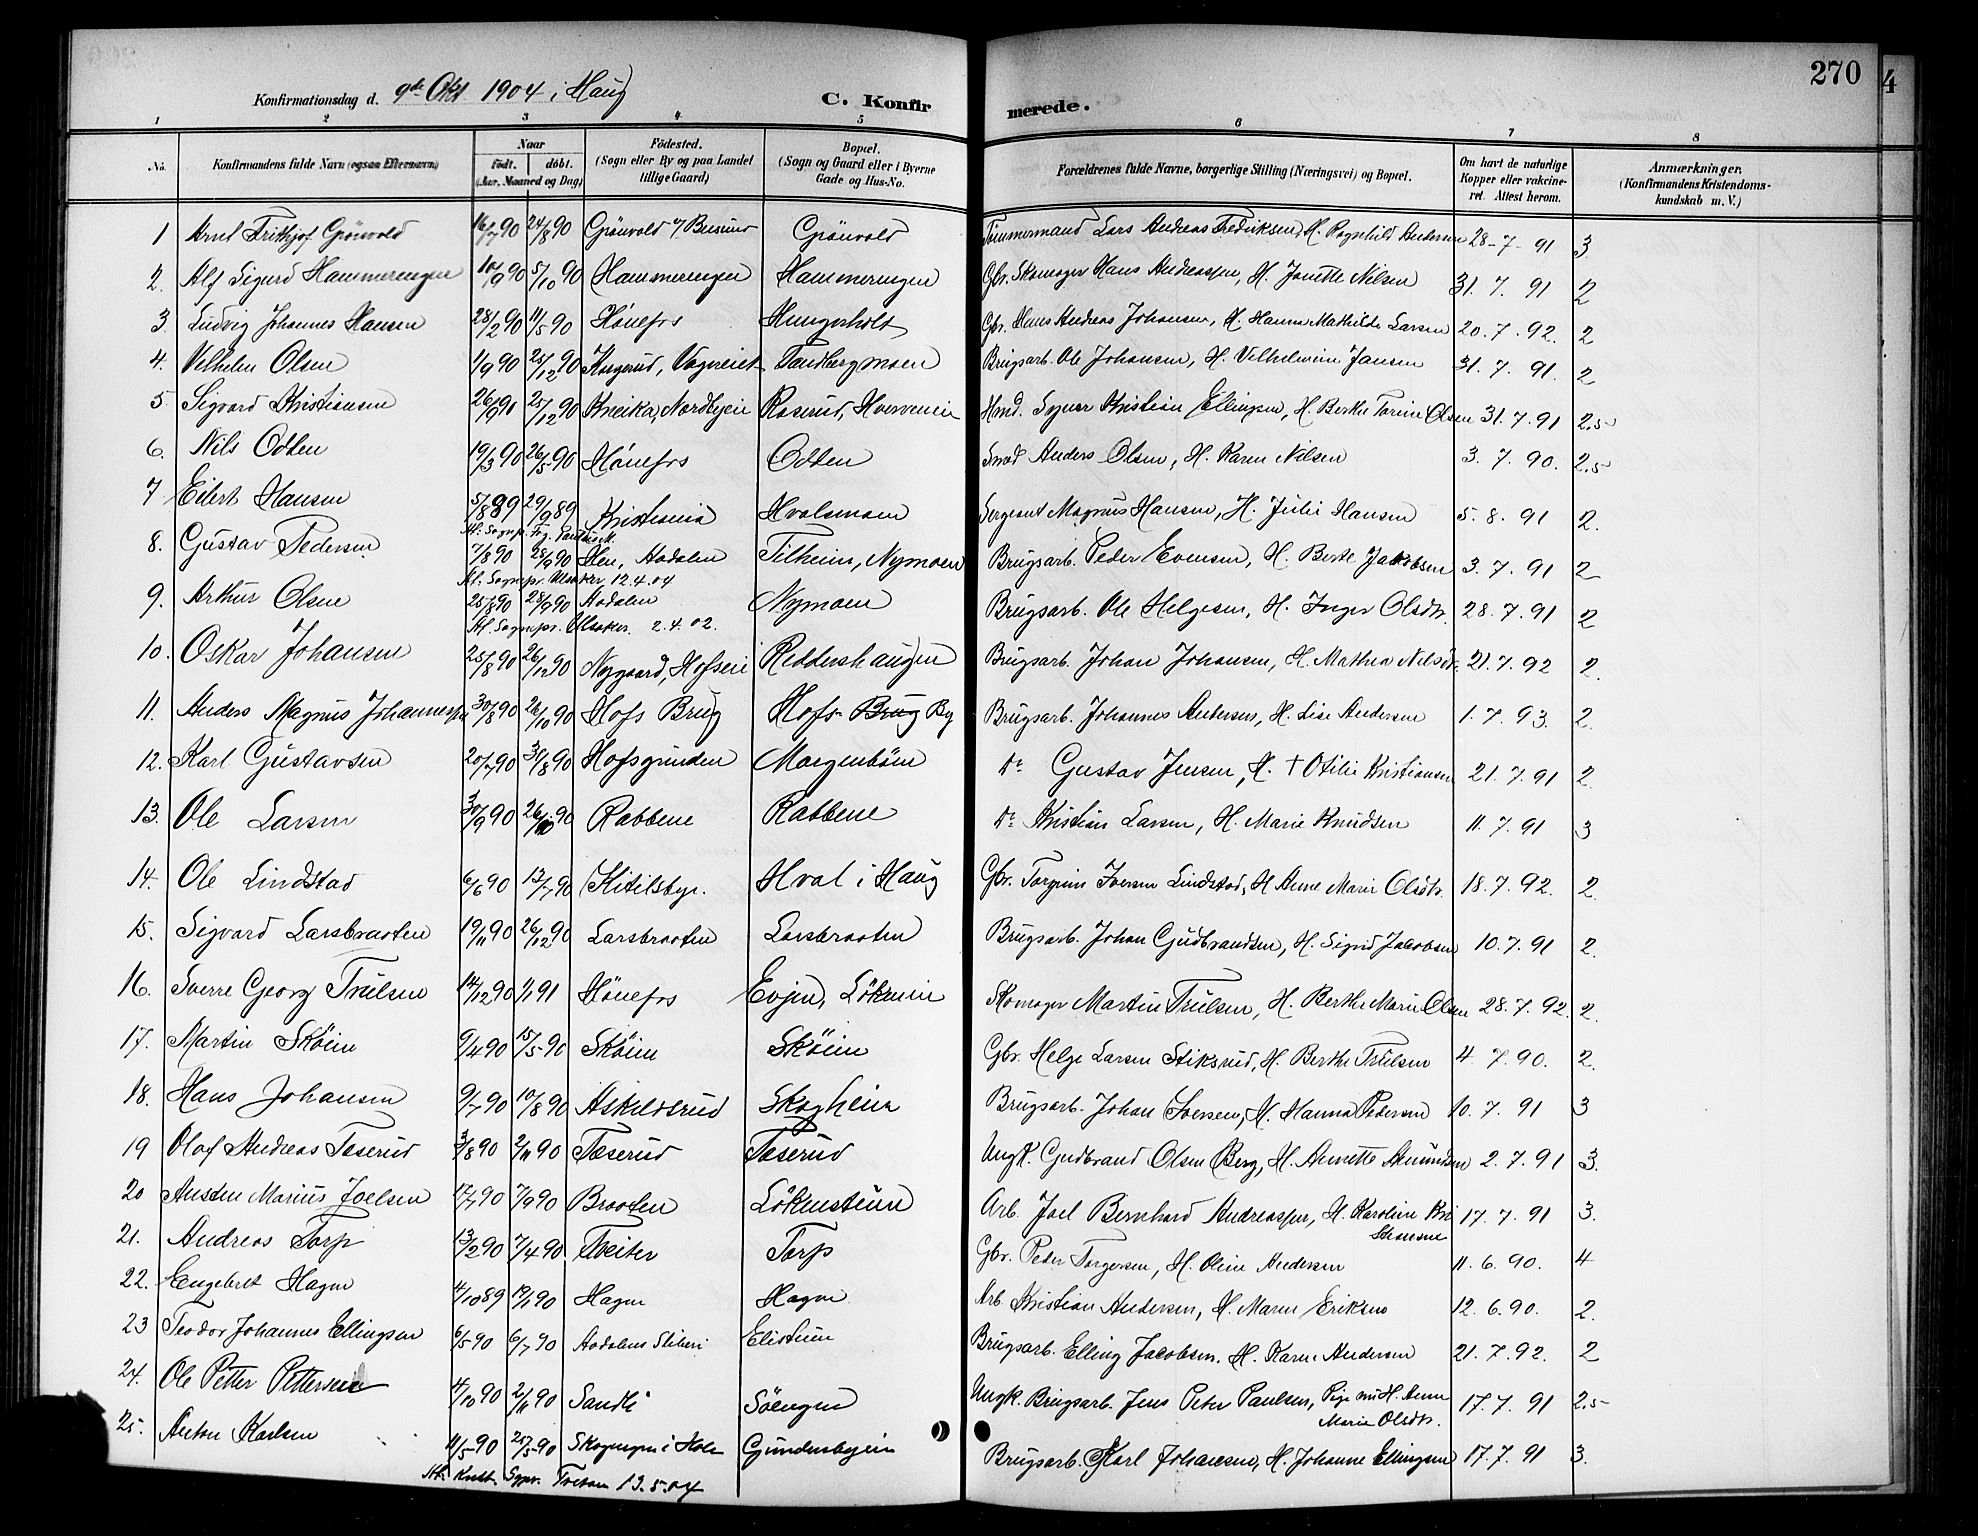 Konfirmationsdag d. 9de Okt 1904 i Haug C. Konfirmerede. 270
1 2 3 4 5 6 7 8
No. Konfirmandens fulde Navn (ogsaa Efternavn) Naar født. døbt. (Aar, Maaned og Dag) Fødested. (Sogn eller By og paa Landet tillige Gaard) Bopæl. (Sogn og Gaard eller i Byerne Gade og Hus-No. Forældrenes fulde Navne, borgerlige Stilling (Næringsvei) og Bopæl. Om havt de naturlige Kopper eller vakcineret. Attest herom. Anmærkninger. (Konfirmandens Kristendomskundskab m. V.)
1 Arnt Frithjof Grönvold 16/7 90 24/8 90 Grönvold Grönvold Tømmermand Lars Andreas Fredriksen, H. Ragnhild Andersen 28-7-91 3
2. Alf Sigurd Hammerengen 10/9 90 5/10 90 Hammerengen Hammerengen Gbr. Skomager Hans Andreassen, H. Janette Nilsen 31.7.91 2
3. Ludvig Johannes Hansen 28/2 90 11/5 90 Hönefos Hungerholt Gbr. Hans Andreas Johansen, H. Hanna Mathilde Larsen 20.7.92. 2
4. Vilhelm Olsen 1/9 90 25/12 90 Tandbergmoen Brugsarb. Ole Johansen, H. Vilhelmine Jansen 31.7.91. 2
5 Sigvard Kristiansen 26/9 90 25/12 90 Kneika, Nordbyeie Roserud, Hverveneie Hmd. Kristian Ellingsen, H. Berthe Torine Olsen 31.7.91 2,5
6. Nils Odden 19/3 90 26/5 90 Hönefos Odden Smed Anders Olsen, H. Karen Nilsen 3.7.90. 2,5
7 Eilert Hansen 5/8 89 29/9 89 Kristiania Hvalsmoen Sergeant Magnus Hansen, H. Julie Hansen 5.8.91 2.
8. Gustav Pedersen 7/8 90 28/9 90 Hen, Aadalen Tilheim, Nymoen Brugsarb. Peder Evensen, H. Berte Jakobsen 3.7.91 2
At. Sognepr. Ulsaker 12.4.04
9. Arthur Olsen 25/8 90 28/9 90 Aadalen Nymoen Brugsarb. Ole Helgesen, H. Inger Olsdtr. 28.7.91 2
At. Sognepr. Ulsaker. 2.4.02.
10. Oskar Johansen 25/8 90 26/12 90 Nygaard, Hofseie Reddershaugen Brugsarb. Johan Johansen, H. Mathea Nilsdtr. 21.7.92 2.
11. Anders Magnus Johannessen 30/8 90 26/10 90 Hofs Brug Hofs Brug By Brugsarb. Johannes Andersen, H. Lise Andersen 1.7.93. 2.
12. Karl Gustavsen 20/7 90 31/8 90 Hofsgrinden Morgenbøen Do Gustav Jensen, H. † Otilie Kristiansen 21.7.91 2.
13. Ole Larsen 30/9 90 26/10 90 Rabbene Rabbene Do Kristian Larsen, H. Marie Knudsen 11.7.91 3
14. Ole Lindstad 6/6 90 13/7 90 Kitilsbye. Hval i Haug Gbr. Torgrim Iversen Lindstad, H Anne Marie Olsdtr. 18.7.92. 2
15. Sigvard Larsbraaten 19/11 90 26/12 90 Larsbraaten Larsbraaten Brugsarb. Johan Gudbrandsen, H. Sigrid Jacobsen 10.7.91 2.
16. Sverre Georg Trulsen 14/12 90 1/1 91 Hönefos Evjen, Lökneeie Skomager Martin Trulsen, H. Berthe Marie Olsen 28.7.92. 2.
17. Martin Sköien 9/4 90 15/5 90 Sköien Sköien Gbr. Helge Larsen Stiksrud, H. Berthe Trulsen 4.7.90. 2.
18. Hans Johansen 9/7 90 10/8 90 Askildsrud Skogheim Brugsarb. Johan Iversen, H. Hanna Pedersen 10.7.91 3
19 Olaf Andreas Tæserud 3/8 90 2/11 90 Tæserud Tæserud Ungk. Gudbrand Olsen Berg, H. Annette Amundsen 2.7.91 3.
20 Austen Marius Joelsen 17/7 90 7/9 90 Braaten Lökensteien Arb. Joel Bernhard Andreassen, H. Karoline Kristiansen 17.7.91 3.
21. Andreas Torp 13/2 90 7/4 90 Torp Gbr. Peder Torgersen, H. Oline Andersen 11.6.90. 4
22. Engebret Hagen 4/10 89 19/1 90 Hagen Hagen Arb. Kristian Andersen, H. Maren Eriksen 12.6.90. 2.
23 Teodor Johannes Ellingsen 6/5 90 6/7 90 Aadalens Sliberi Elisteien Brugsarb. Elling Jacobsen, H. Karen Andersen 21.7.92. 2
24. Ole Petter Pettersen 4/10 90 2/11 90 Sandli Söengen Ungk. Brugsarb. Jens Peter Paulsen, Pige nu H. Anne Marie Olsdtr. 17.7.91 2,5
25. Anton Karlsen 4/5 90 25/5 90 Gundersbyeie Brugsarb. Karl Johansen, H. Johanne Ellingsen 17.7.91 3.
13.5.04